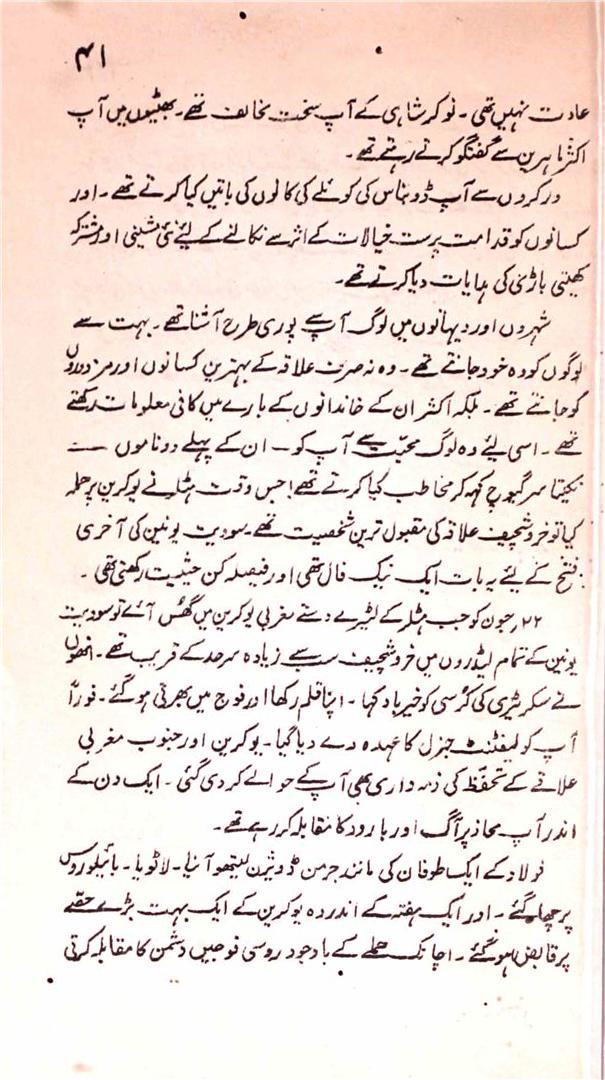 ۴۱
عادت نہیں تھی۔ نوکر شاہی کے آپ سخت مخالف تھے۔ بھٹیوں میں آپ
اکثر ماہرین سے گفتگو کرتے رہتے تھے۔
ورکروں سے آپ ڈونباس کی کوئلے کی کانوں کی باتیں کیا کرتے تھے۔ اور
کسانوں کو قدامت پرست خیالات کے اثر سے نکالنے کے لئے نئی مشینی اور مشترکہ
کھیتی باڑی کی ہدایات دیا کرتے تھے۔
شہروں اور دیہاتوں میں لوگ آپ سے پوری طرح آشنا تھے۔ بہت سے
لوگوں کو وہ خود جانتے تھے۔ وہ نہ صرف علاقہ کے بہترین کسانوں اور مزدوروں
کو جانتے تھے۔ بلکہ اکثر ان کے خاندانوں کے بارے میں کافی معلومات رکھتے
تھے۔ اسی لئے وہ لوگ محبت سے آپ کو — ان کے پہلے دو ناموں —
نکیتا سرگیوچ کہہ کر مخاطب کیا کرتے تھے! جس وقت ہٹلر نے یوکرین پر حملہ
کیا تو خروشچیف علاقہ کی مقبول ترین شخصیت تھے۔ سوویت یونین کی آخری
فتح کے لئے یہ بات ایک نیک فال تھی اور فیصلہ کن حیثیت رکھتی تھی۔
۲۲؍ جون کو جب ہٹلر کے لٹیرے دستے مغربی یوکرین میں گھس آئے تو سوویت
یونین کے تمام لیڈروں میں خروشچیف سب سے زیادہ سرحد کے قریب تھے۔ انھوں
نے سکرٹری کی کرسی کو خیرباد کہا۔ اپنا قلم رکھا اور فوج میں بھرتی ہو گئے۔ فوراً
آپ کو لیفٹنٹ جنرل کا عہدہ دے دیا گیا۔ یوکرین اور جنوب مغربی
علاقے کے تحفّظ کی ذمہ داری بھی آپ کے حوالے کر دی گئی۔ ایک دن کے
اندر آپ محاذ پر آگ اور بارود کا مقابلہ کر رہے تھے۔
فولاد کے ایک طوفان کی مانند جرمن ڈویژن لیتھوآنیا۔ لاٹویا۔ بائیلوروس
پر چھا گئے۔ اور ایک ہفتہ کے اندر وہ یوکرین کے ایک بہت بڑے حصّے
پر قابض ہو گئے۔ اچانک حملے کے باوجود روسی فوجیں دشمن کا مقابلہ کرتی